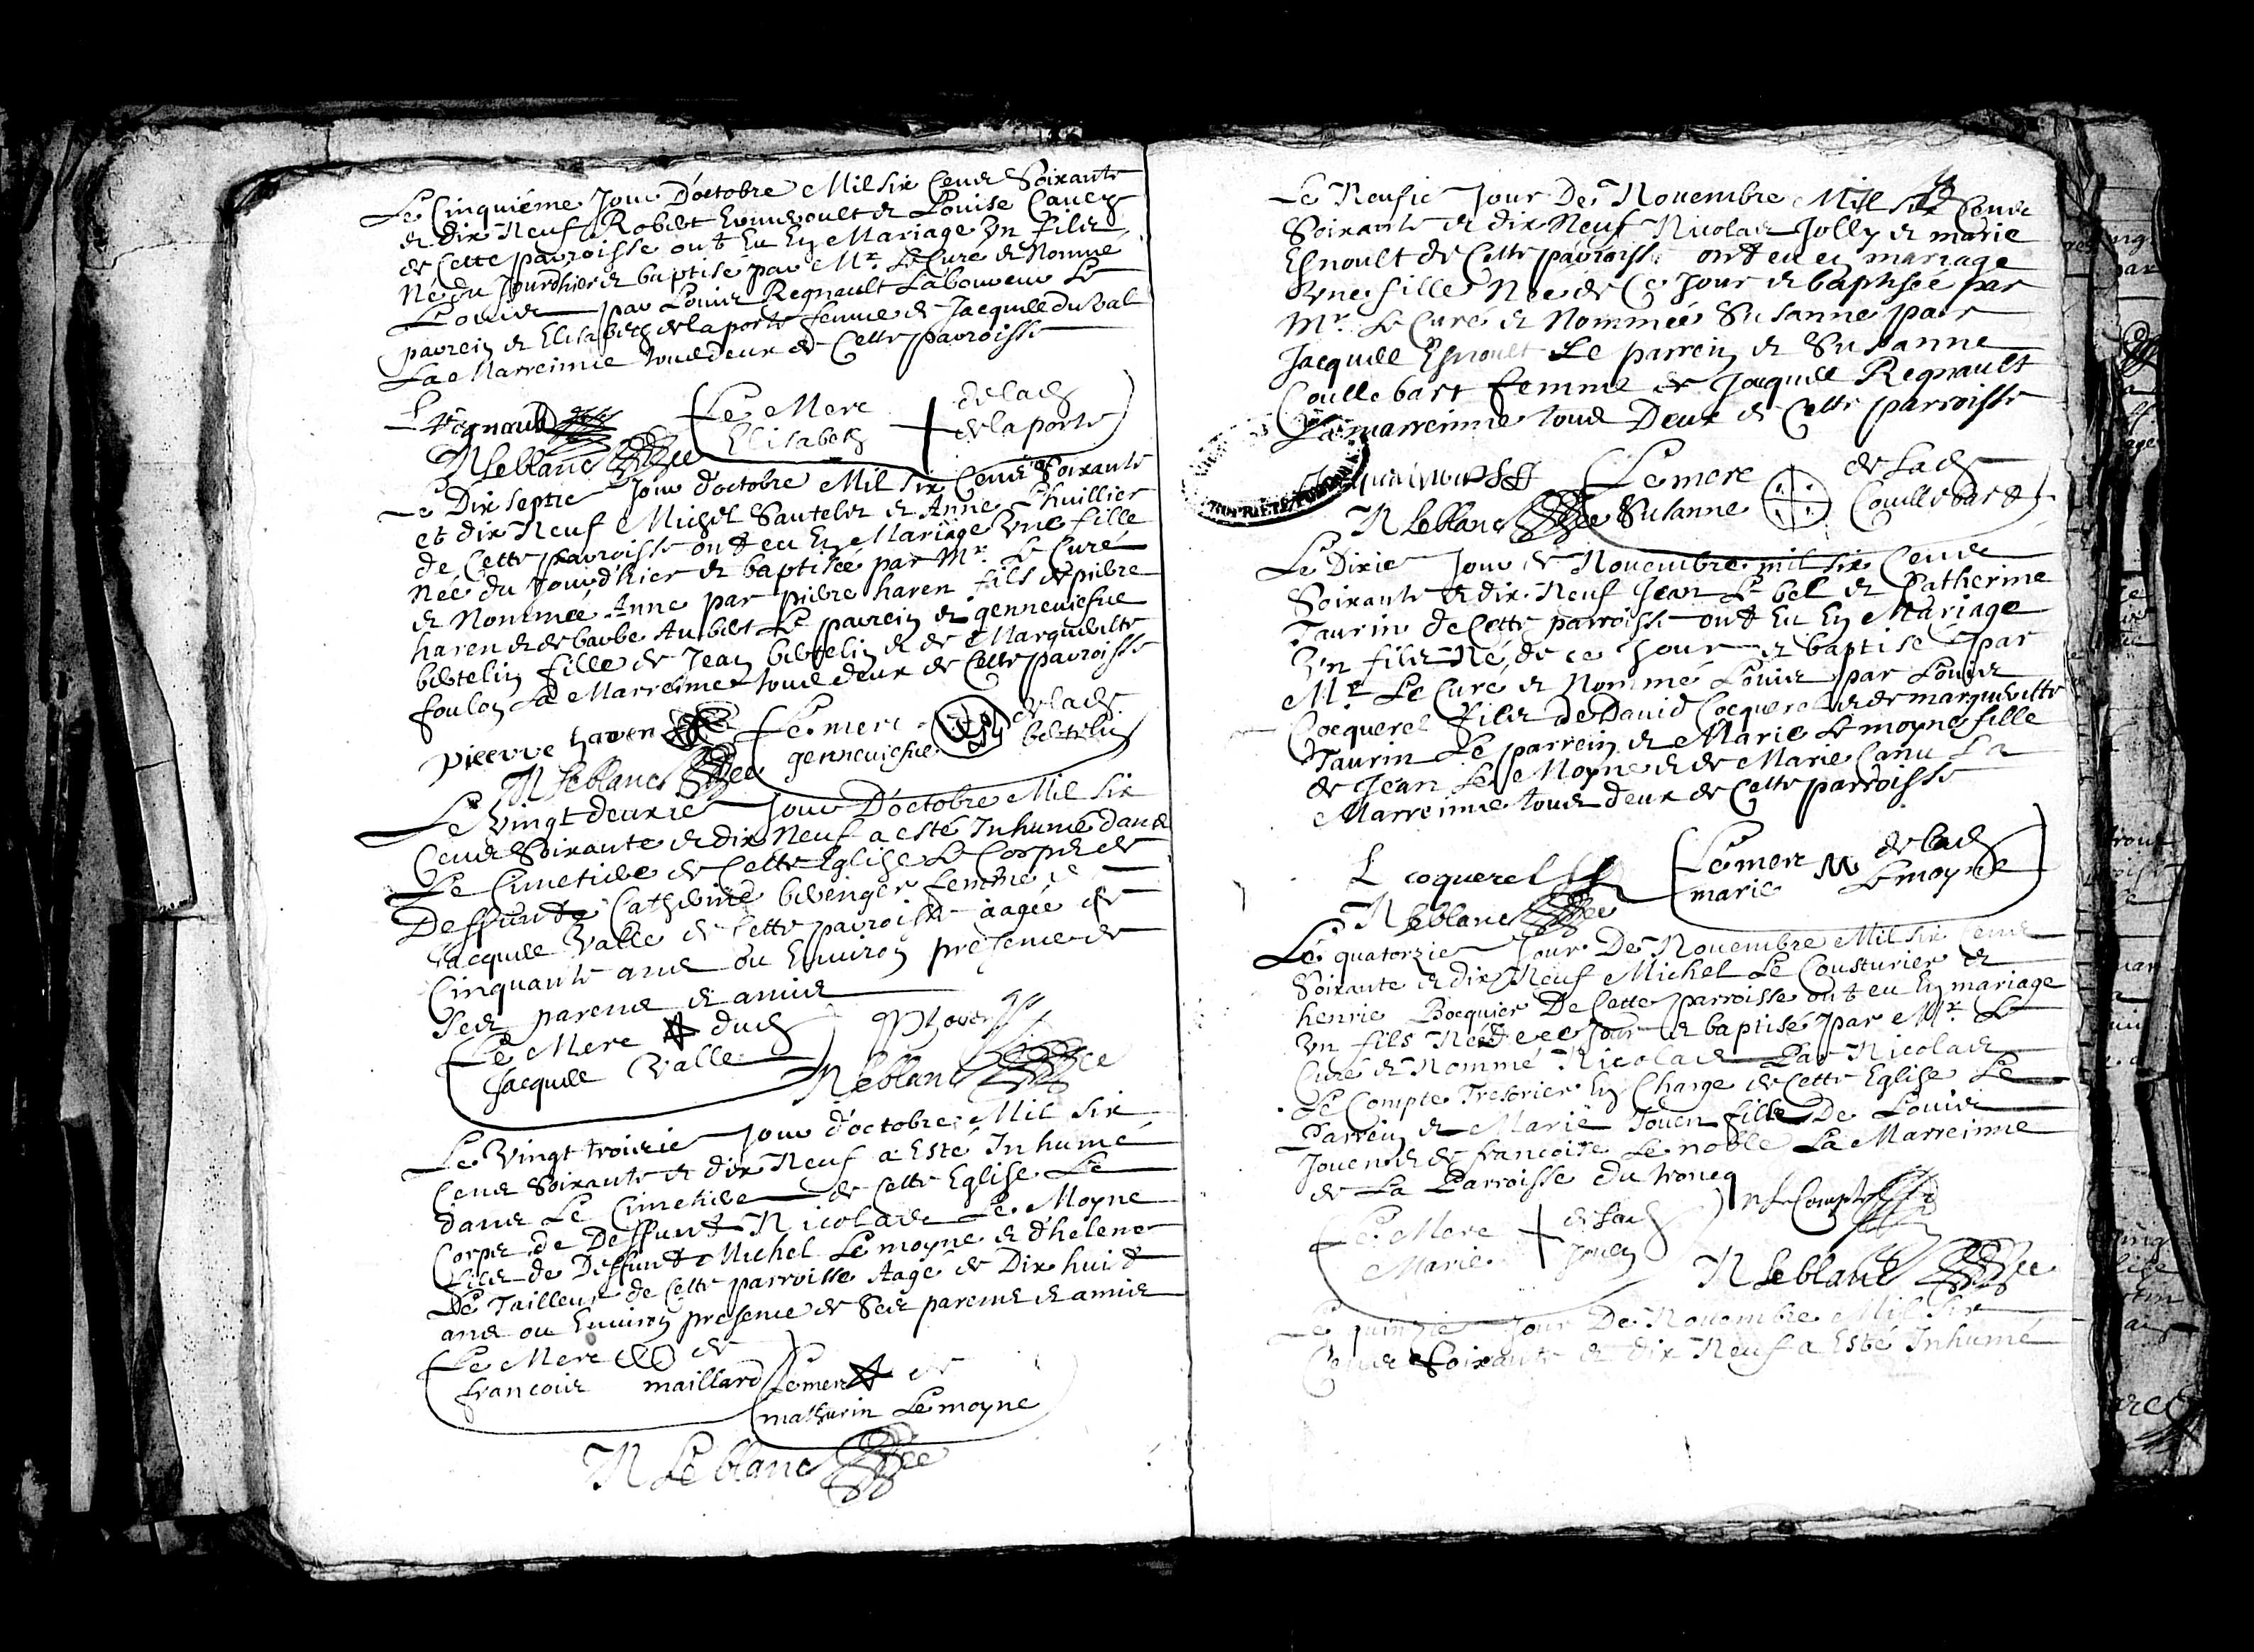 Le Cinquiéme Jour D'octobre Mil six Cens Soixante
et dix Neuf Robert et Louise
de Cette parroisse ont Eu En Mariage Un fils
Né du Jourdhier et baptisé par Mr. Le Curé et Nommé
Louis par Louis Regnault Laboureur Le
parrein et Elisabeth delaporte femme de Jacques Duval
La Marreinne tous deux de Cette parroisse
L Regnault
Le Merc de lad
Elisabeth delaporte
N Leblanc
Le Dix septie Jour d'octobre Mil six Cens Soixante
et dix Neuf Michel Sautelet et Anne Lhuillier
de Cette parroisse ont eu En Mariage Une fille
Née du Jour d'hier et baptisée par Mr. Le Curé
et Nommée Anne par pierre haren fils de pierre
haren et de barbe Aubert Le parrein et genneuiefue
bertelin fille de Jean bertelin et de Marguerite
foulon La Marreinne tous deux de Cette parroisse
pierre haren
Le merc de lad
genneuiefue bertelin
N Leblanc
Le Vingt deuxie Jour D'octobre Mil six
Cens Soixante et dix Neuf a esté Inhumé dans
Le Cimetiere de Cette Eglise Le Corps de
Deffunte Catherine berenger femme de
Jacques Vallé de Cette parroisse aagée de
Cinquante ans ou Enuiron presence de
Ses parens et amis
Le Merc dud
Jacques Vallé
N Leblanc
Le Vingt troisie Jour d'octobre Mil six
Cens Soixante et dix Neuf a Esté Inhumé
dans Le Cimetiere de Cette Eglise Le
Corps de Deffunt Nicolas Le Moyne
fils de Deffunt Michel Lemoyne et d'helene
Le Tailleur de Cette parroisse Aagé de Dix huit
ans ou Enuiron presence de Ses parens et amis
Le Merc de
francois maillard
Le merc de
mathurin Lemoyne
N Leblanc
Le Neufie Jour De Nouembre Mil six Cens
Soixante et dix Neuf Nicolas Jolly et marie
Esnoult de Cette parroisse ont eu en mariage
Une fille Née de Ce Jour et baptisée par
Mr. Le Curé et Nommée Susanne par
Jacques Esnoult Le parrein et Susanne
Coullebart femme de Jacques Regnault
La marreinne tous Deux de Cette parroisse
Le merc de lad
Susanne Coullebart
N Leblanc
Le Dixie Jour de Nouembre mil six Cens
Soixante et dix Neuf Jean Le bel et Catherine
Taurin de Cette parroisse ont Eu En Mariage
Un fils Né de ce Jour et baptisé par
Mr Le Curé et Nommé Louis par Louis
Cocquerel fils de Dauid Cocquerel et de marguerite
Taurin Le parrein et Marie Lemoyne fille
de Jean Le Moyne et de Marie Canu La
Marreinne tous deux de Cette parroisse
L coquerel
Le merc de lad
marie Lemoyne
N Leblanc
Le quatorzie Jour De Nouembre Mil six Cens
Soixante et dix Neuf Michel Le Cousturier et
henrie Bocquier De Cette parroisse ont eu En mariage
Un fils Né de ce Jour et baptisé par Mr. Le
Curé et Nommé Nicolas Par Nicolas
Le Compte Tresorier En Charge de Cette Eglise Le
Parrein et Marie Jouen fille De Louis
Jouen et de francoise Lenoble La Marreinne
de La Parroisse du troncq
N Le Compte
Le Merc de lad
Marie Jouen
N Leblanc
Le quinzie Jour De Nouembre Mil six
Cens Soixante et dix Neuf a Esté Inhumé